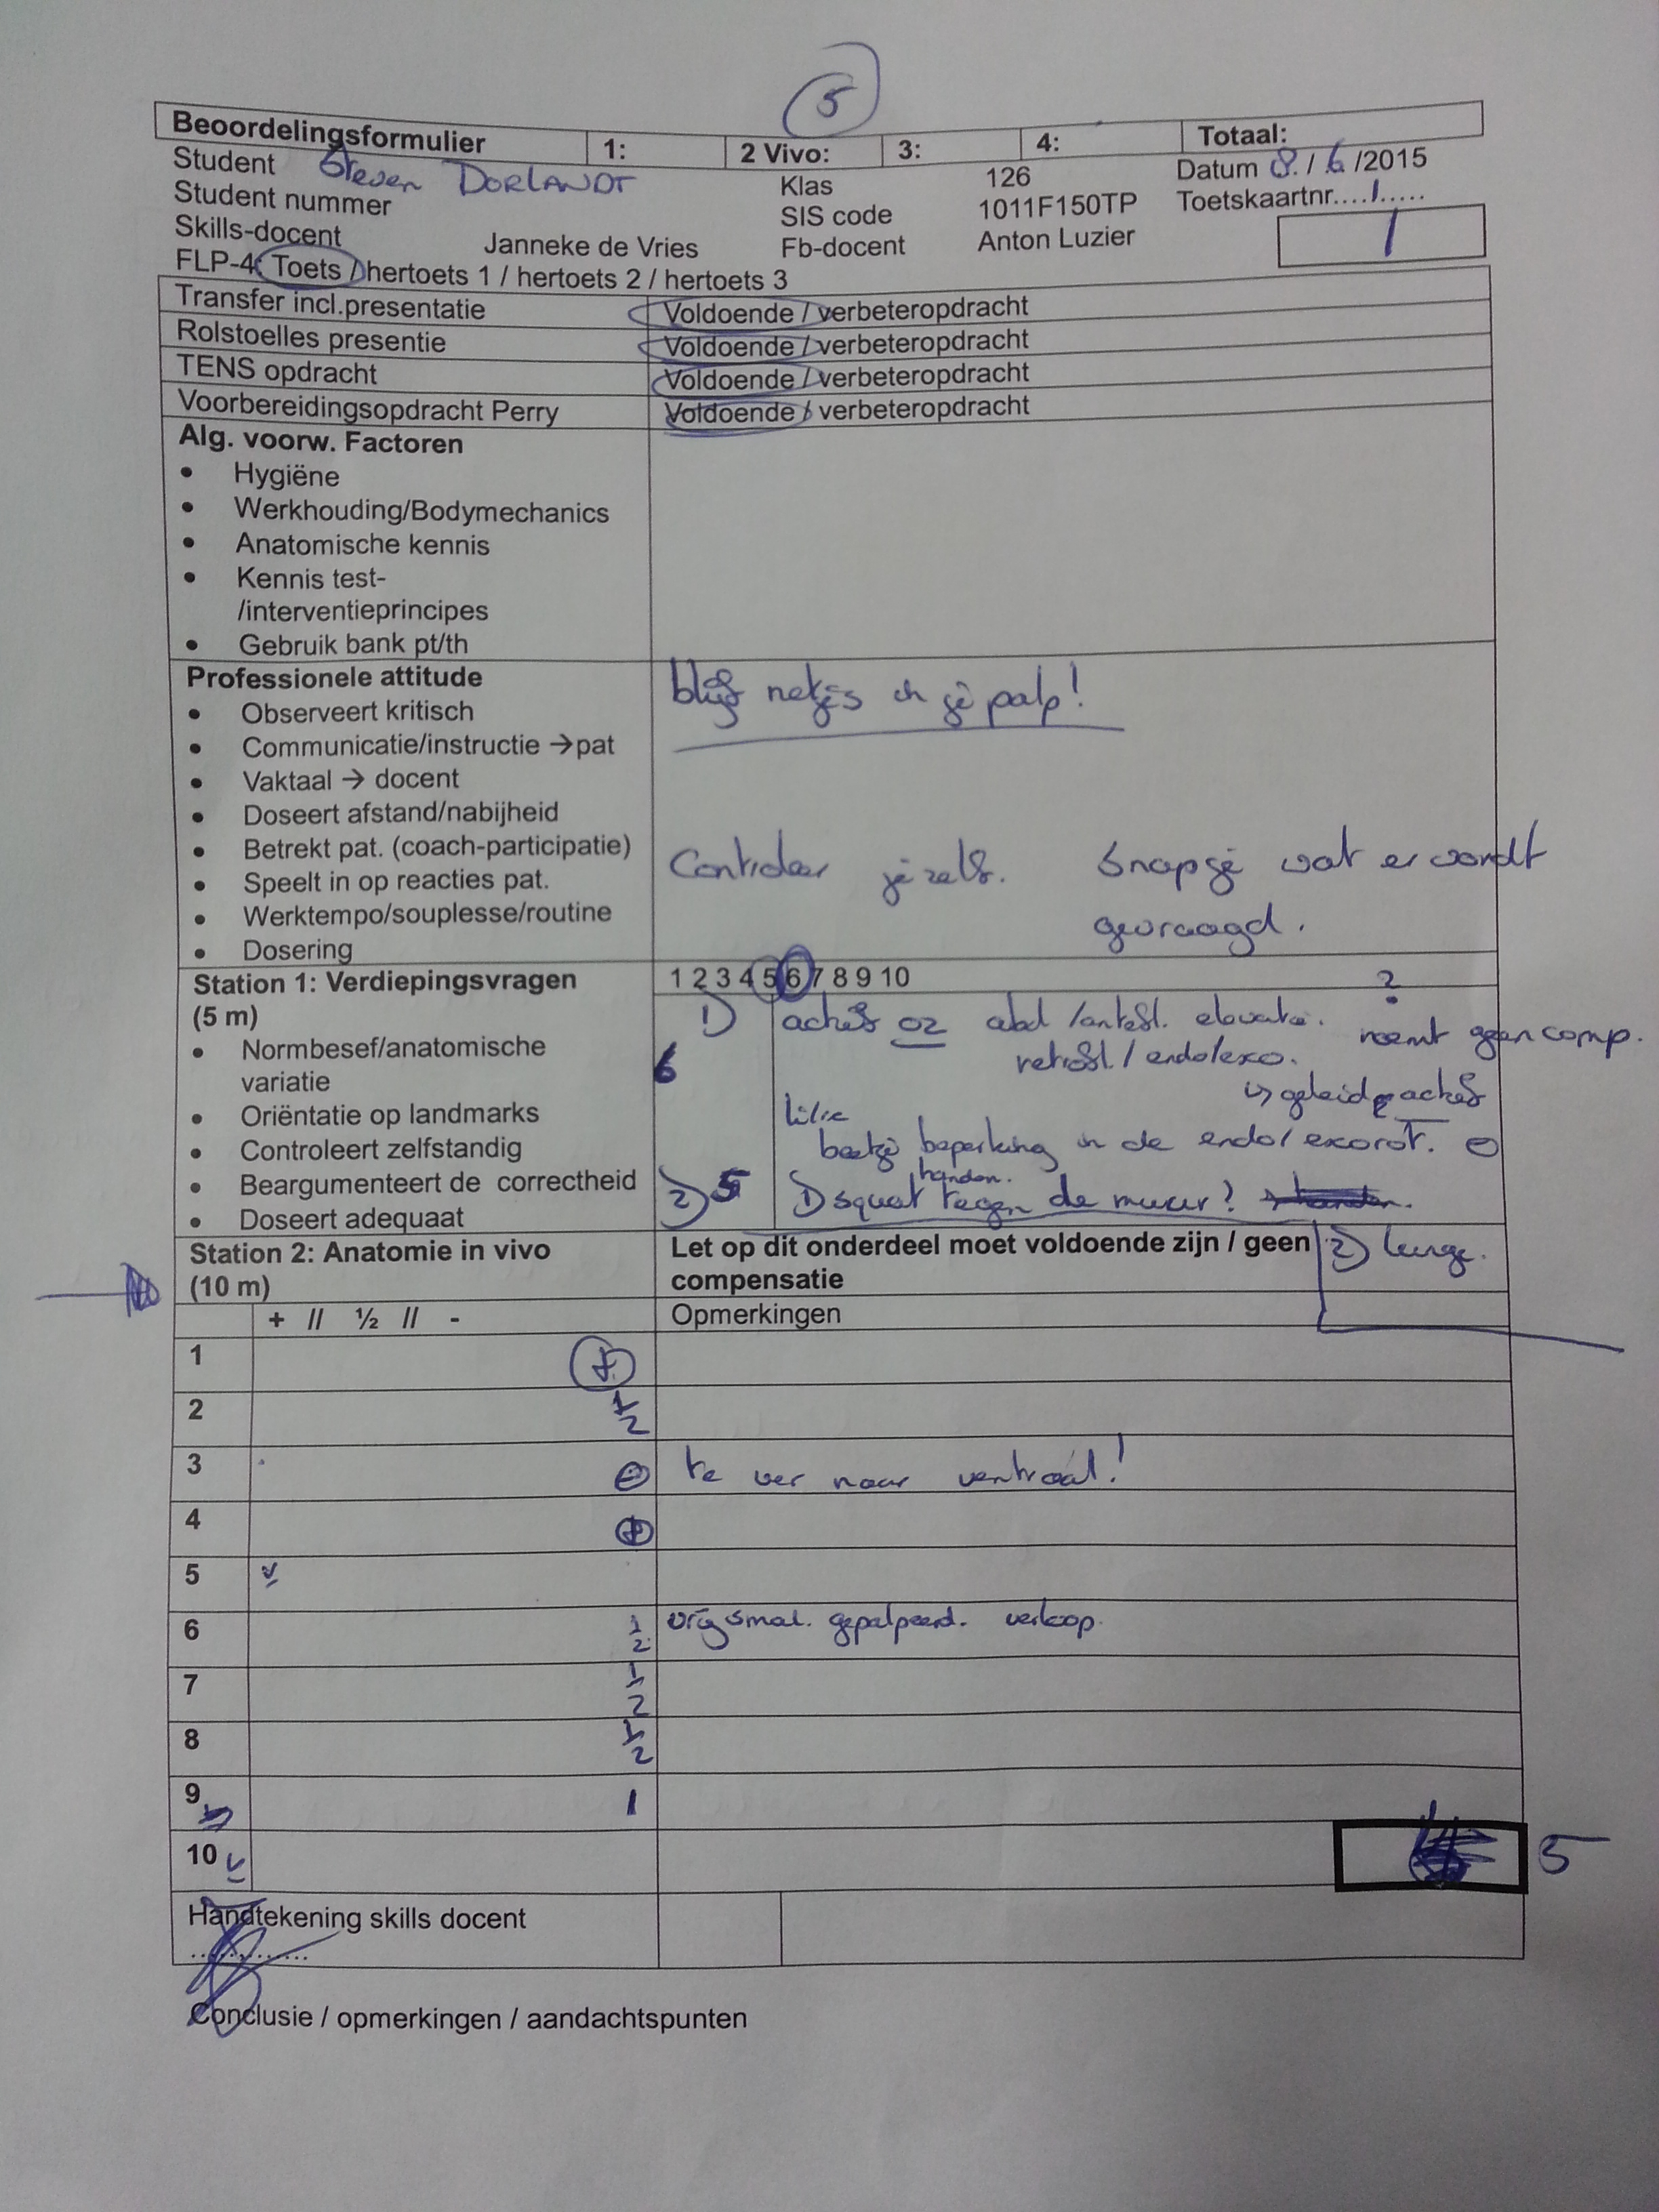 5
Beoordelingsformulier 1: 2 Vivo: 3: 4: Totaal:
Student Steven DORLANDT Klas 126 Datum 8 / 6 /2015
Student nummer SIS code 1011F150TP Toetskaartnr....1.....
Skills-docent Janneke de Vries Fb-docent Anton Luzier 1
FLP-4 Toets / hertoets 1 / hertoets 2 / hertoets 3
Transfer incl.presentatie Voldoende / verbeteropdracht
Rolstoelles presentie Voldoende / verbeteropdracht
TENS opdracht Voldoende / verbeteropdracht
Voorbereidingsopdracht Perry Voldoende / verbeteropdracht
Alg. voorw. Factoren
• Hygiëne
• Werkhouding/Bodymechanics
• Anatomische kennis
• Kennis test-
/interventieprincipes
• Gebruik bank pt/th
Professionele attitude
blijf netjes in je palp!
• Observeert kritisch
• Communicatie/instructie → pat
• Vaktaal → docent
• Doseert afstand/nabijheid
• Betrekt pat. (coach-participatie)
Controleer jezelf. Snap je wat er wordt
• Speelt in op reacties pat.
• Werktempo/souplesse/routine
gevraagd.
• Dosering
Station 1: Verdiepingsvragen 1 2 3 4 5 6 7 8 9 10
(5 m)
?
1) actief oz abd /antefl. elevatie. noemt geen comp.
• Normbesef/anatomische
variatie
6 retrofl. / endo/exo.
↳ geleid actief
• Oriëntatie op landmarks
• Controleert zelfstandig
beetje beperking in de endo/exorot. -
• Beargumenteert de correctheid
handen.
2) 5 1) squat tegen de muur?
• Doseert adequaat
Station 2: Anatomie in vivo Let op dit onderdeel moet voldoende zijn / geen 2) lunge.
(10 m) compensatie
+ // ½ // - Opmerkingen
1 +
2 ½
3 - te ver naar ventraal!
4 +
5 v
6 ½ smal. gepalpeerd. verloop.
7 ½
8 ½
9 1
10 v 5
Handtekening skills docent
.............
Conclusie / opmerkingen / aandachtspunten